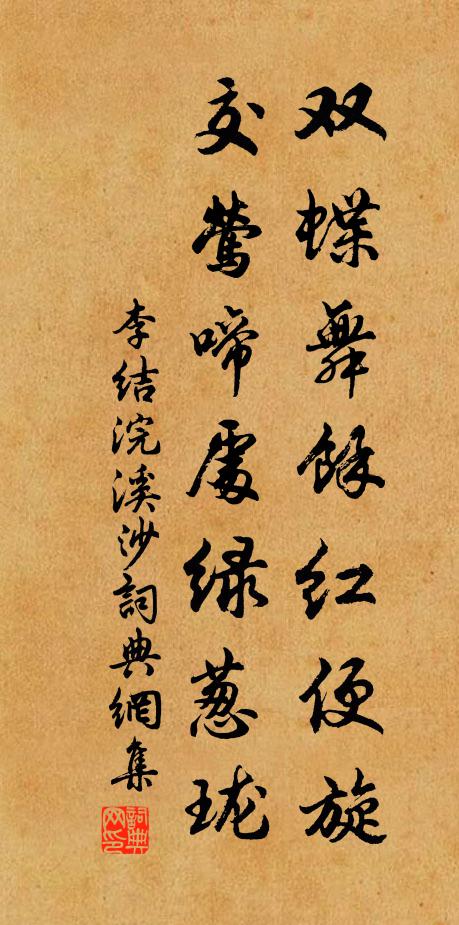 双蝶舞餘红便旋
交莺啼處绿葱珑
李结浣溪沙詞典網集
詞典网印